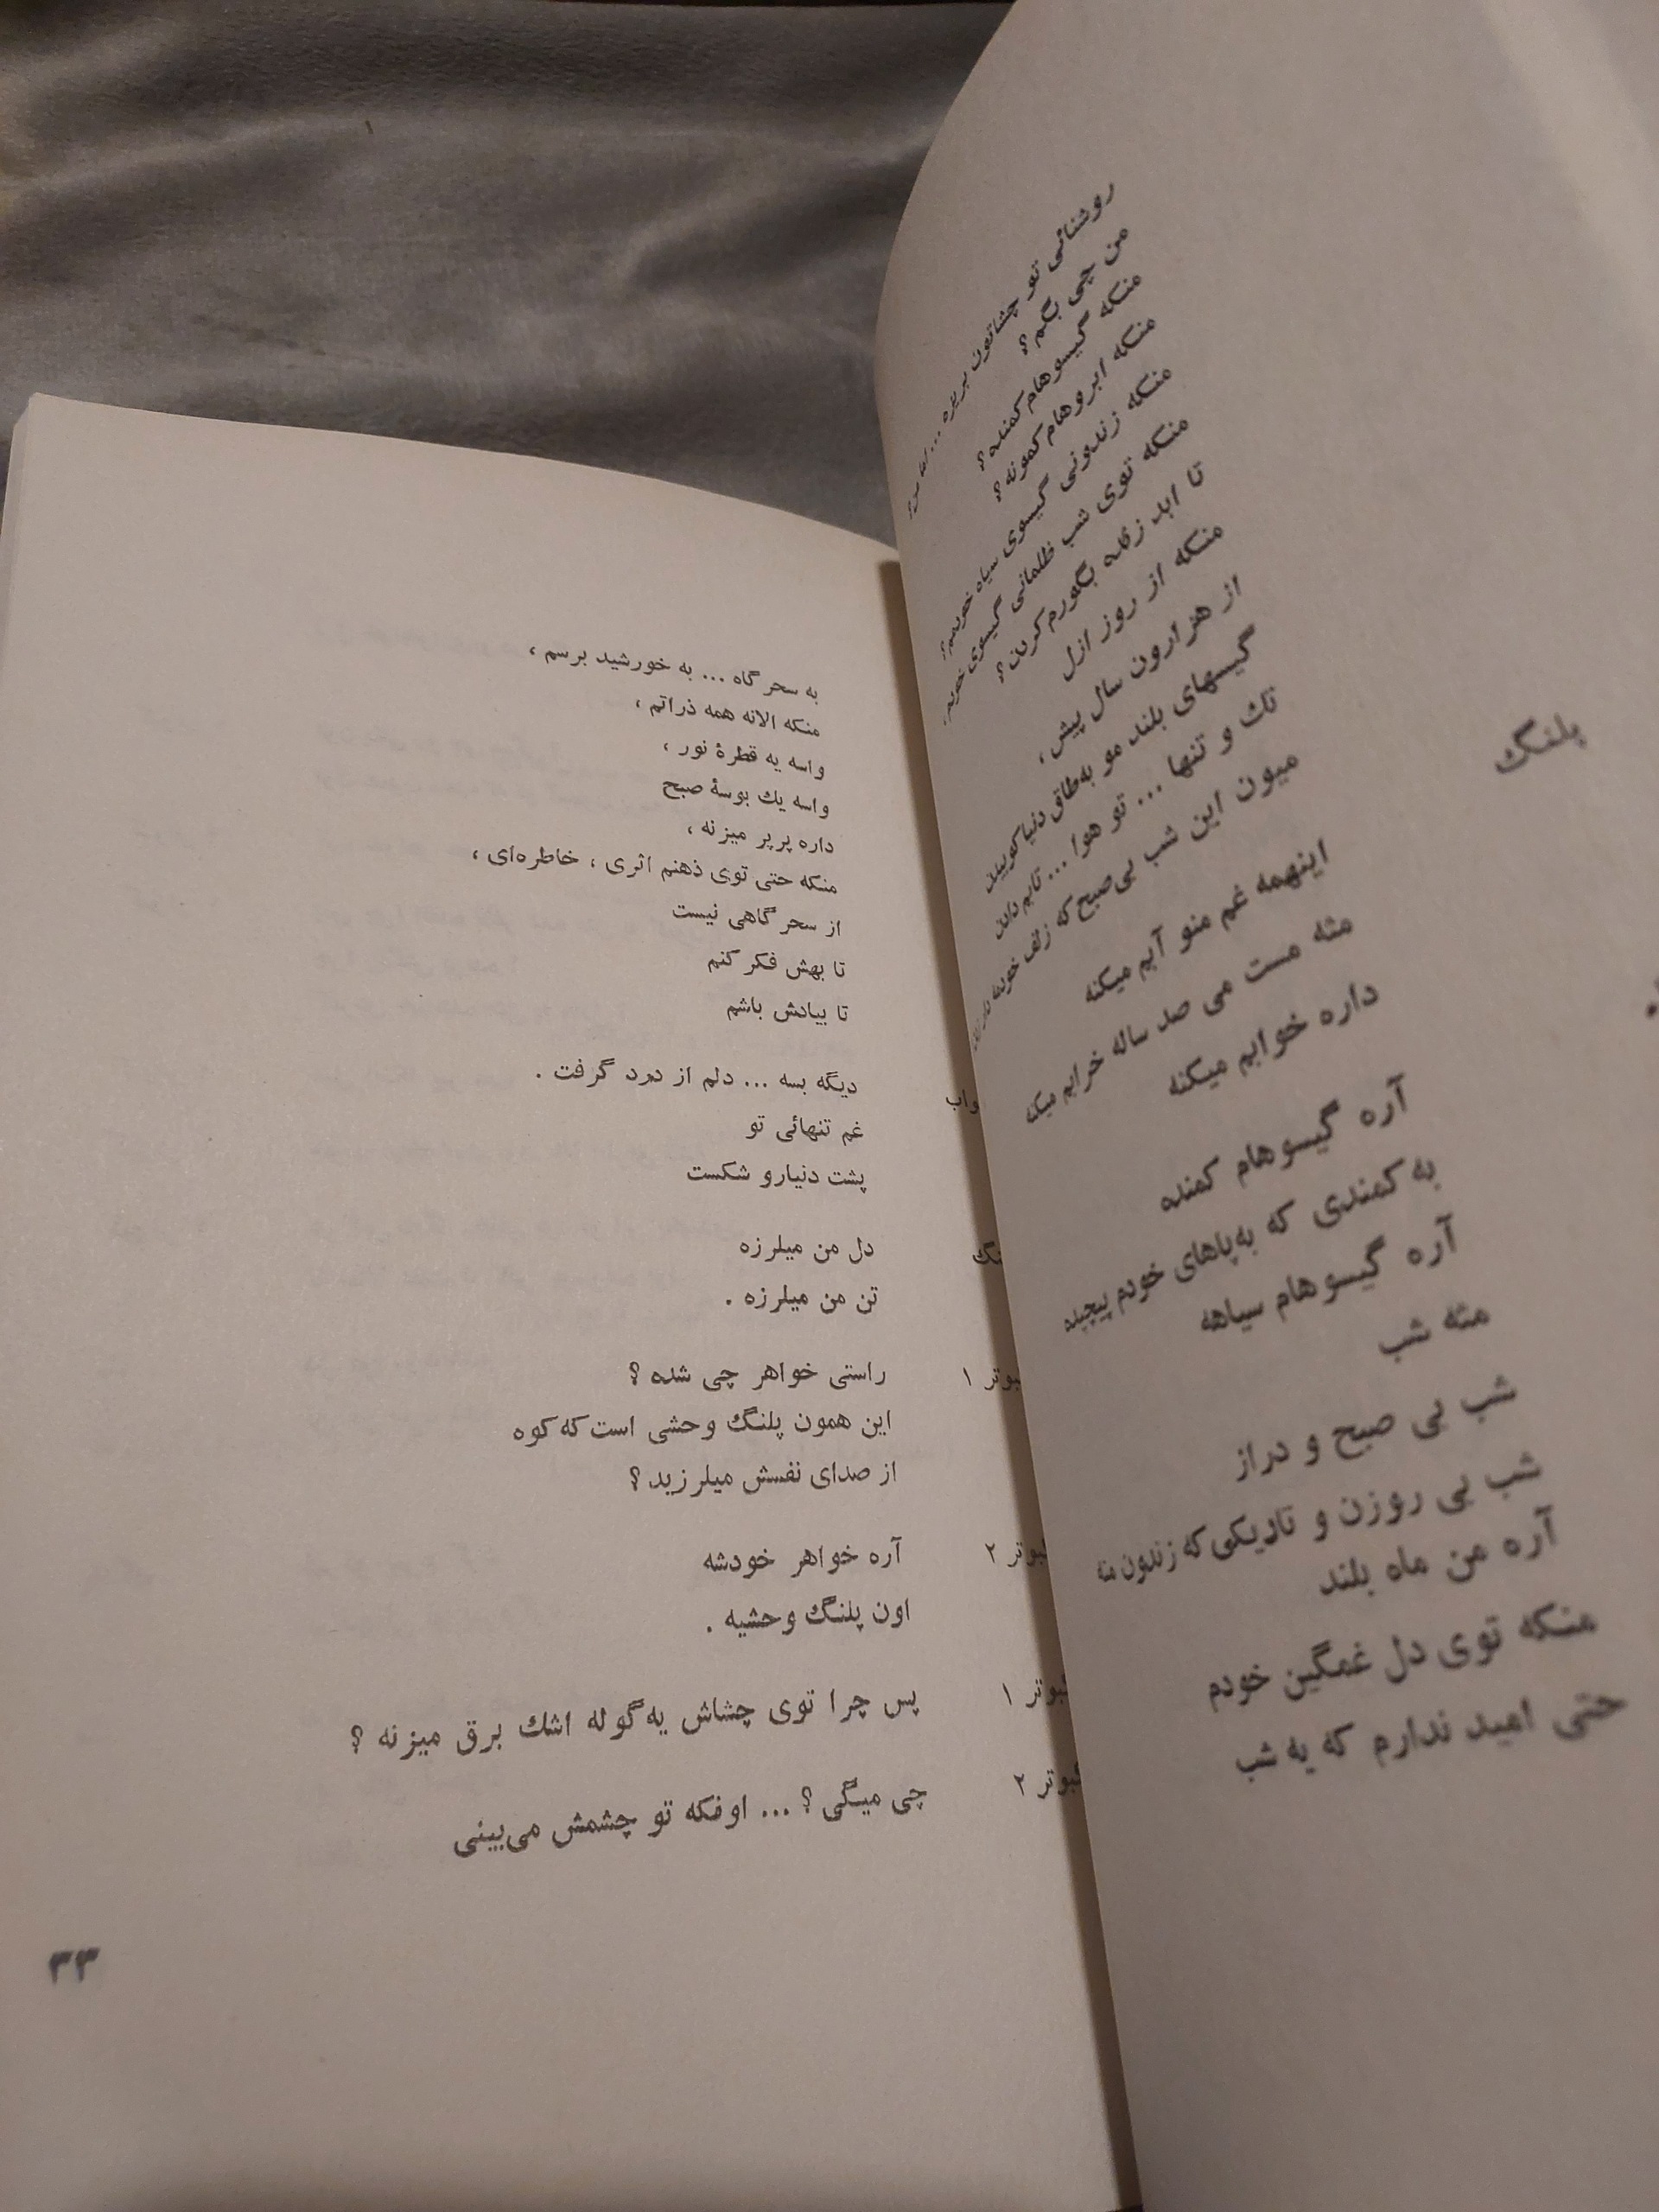 روشنائی تو چشاتون بریزه ...
من چی بگم ؟
منکه گیسوهام کمنده ؟
منکه ابروهام کمونه ؟
منکه زندونی گیسوی سیاه خودمم ؟
منکه توی شب ظلمانی گیسوی خودم ،
تا ابد زنده بگورم کردن ؟
منکه از روز ازل
از هزارون سال پیش ،
گیسهای بلند مو به‌طاق دنیا کوبیدن
تك و تنها ... تو هوا ... تابم دادن
میون این شب بی‌صبح که زلف خودمه
اینهمه غم منو آبم میکنه
مثه مست می صد ساله خرابم میکنه
داره خوابم میکنه
پلنگ
آره گیسوهام کمنده
به کمندی که به‌پاهای خودم پیچیده
آره گیسوهام سیاهه
مثه شب
شب بی صبح و دراز
شب بی روزن و تاریکی که زندون منه
آره من ماه بلند
منکه توی دل غمگین خودم
حتی امید ندارم که یه شب
به سحرگاه ... به خورشید برسم ،
منکه الانه همه ذراتم ،
واسه یه قطرۀ نور ،
واسه یك بوسۀ صبح
داره پرپر میزنه ،
منکه حتی توی ذهنم اثری ، خاطره‌ای ،
از سحرگاهی نیست
تا بهش فکر کنم
تا بیادش باشم
واب دیگه بسه ... دلم از درد گرفت .
غم تنهائی تو
پشت دنیارو شکست
نگ دل من میلرزه
تن من میلرزه .
بوتر ۱ راستی خواهر چی شده ؟
این همون پلنگ وحشی است که کوه
از صدای نفسش میلرزید ؟
بوتر ۲ آره خواهر خودشه
اون پلنگ وحشیه .
بوتر ۱ پس چرا توی چشاش یه گوله اشك برق میزنه ؟
بوتر ۲ چی میگی ؟ ... اونکه تو چشمش می‌بینی
۳۳